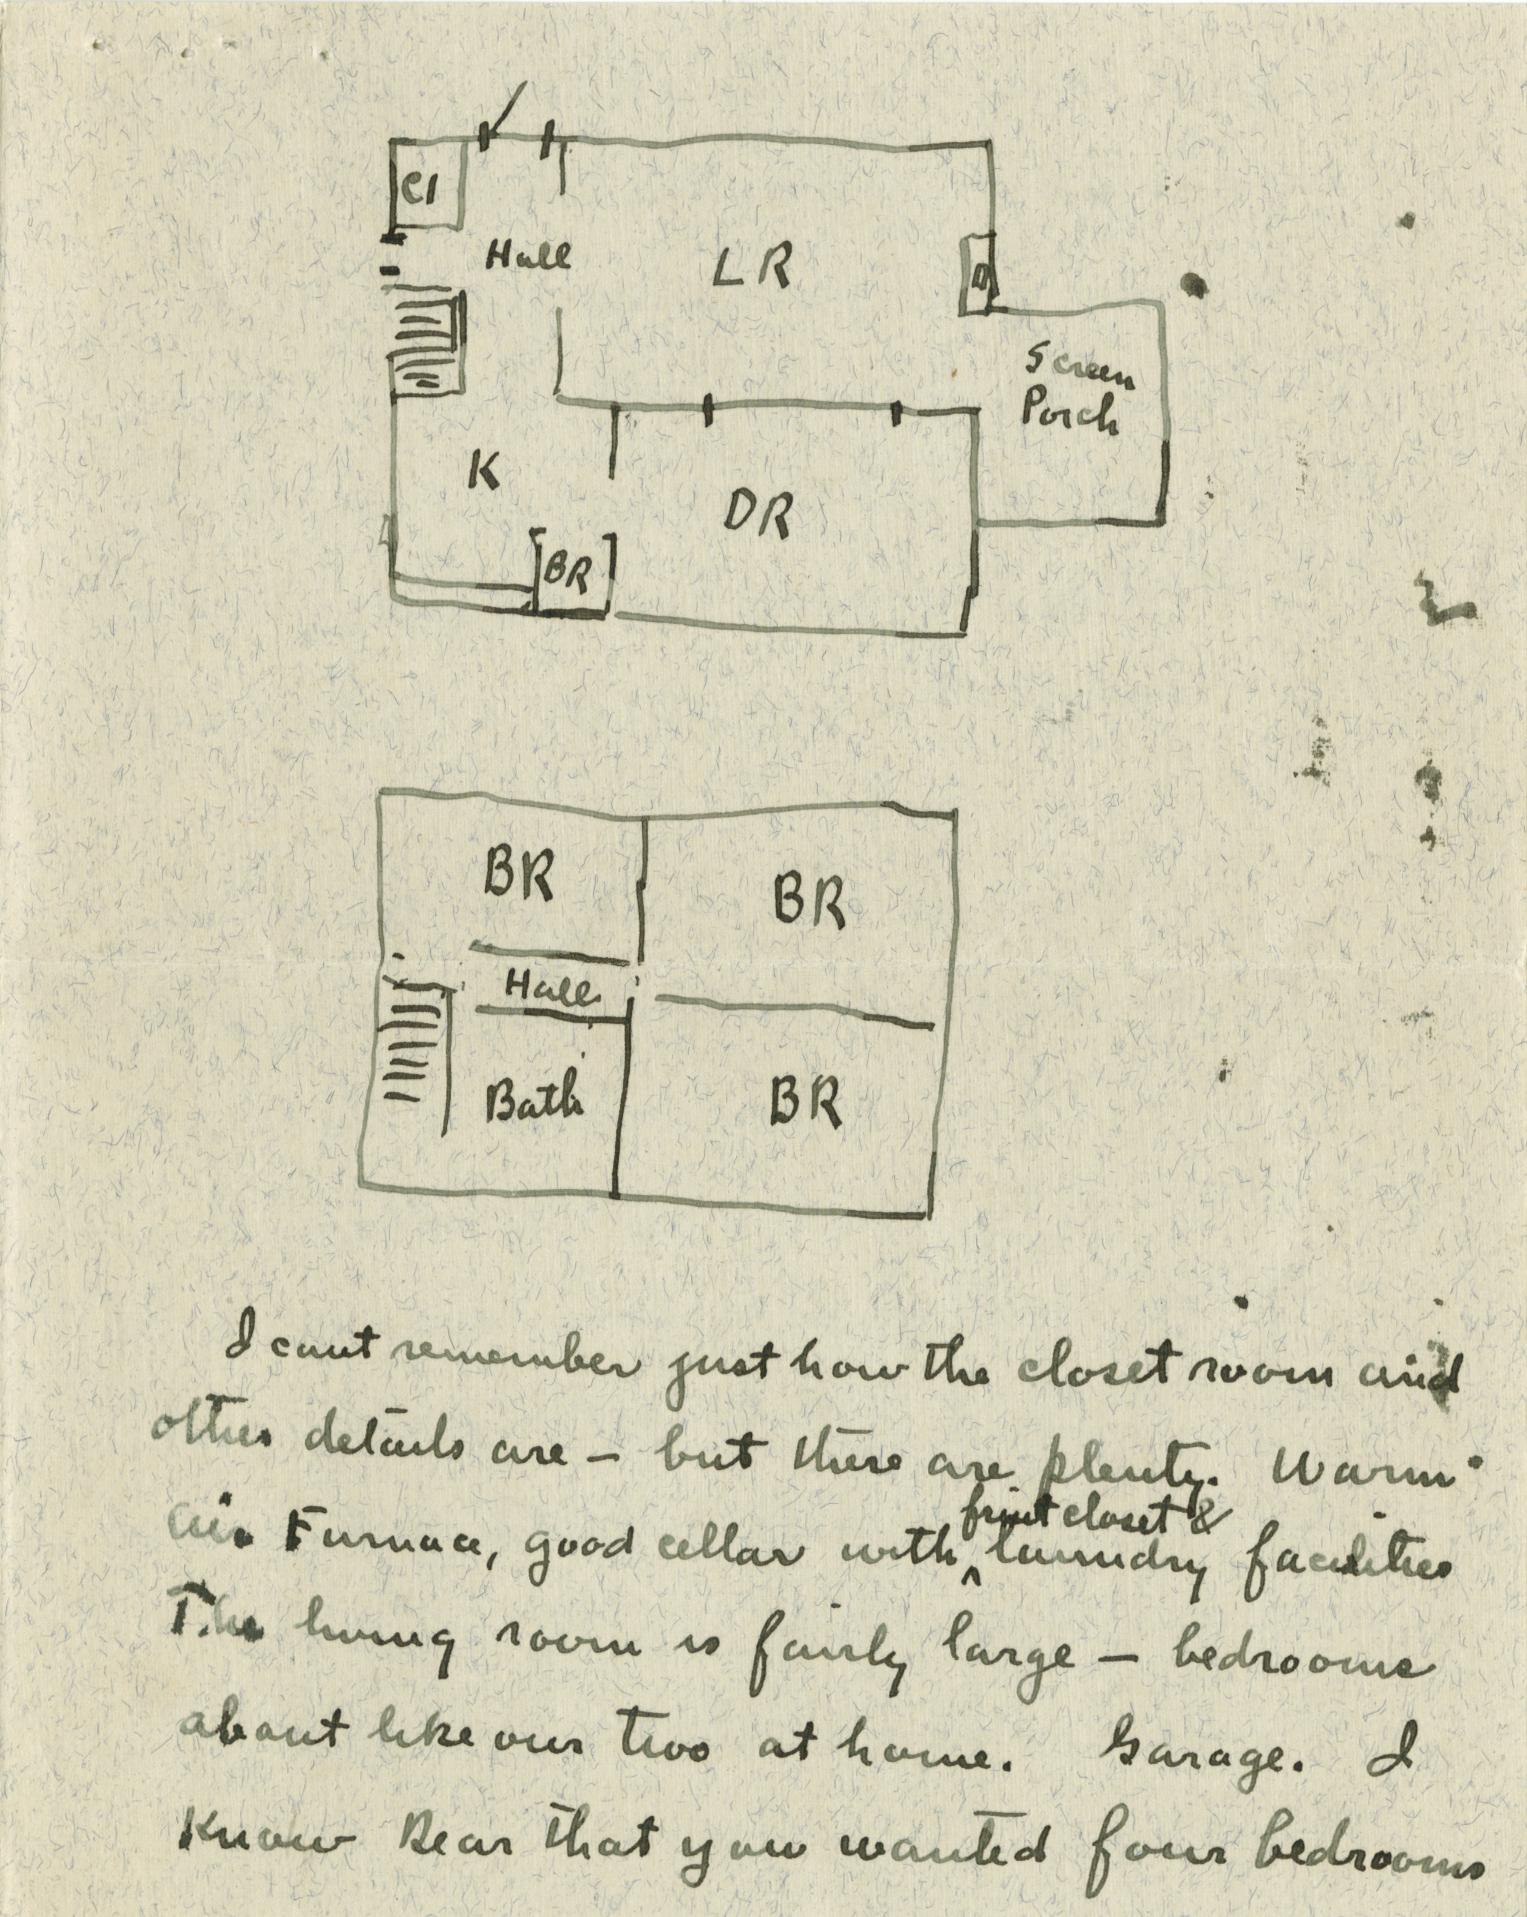 Cl
Hall
LR
Screen
Porch
K
DR
BR
BR
BR
Hall
Bath
BR
I cant remember just how the closet room and
other details are – but there are plenty. Warm
air Furnace, good cellar with fruit closet & laundry facilities
The living room is fairly large – bedrooms
about like our two at home. Garage. I
Know Dear that you wanted four bedrooms